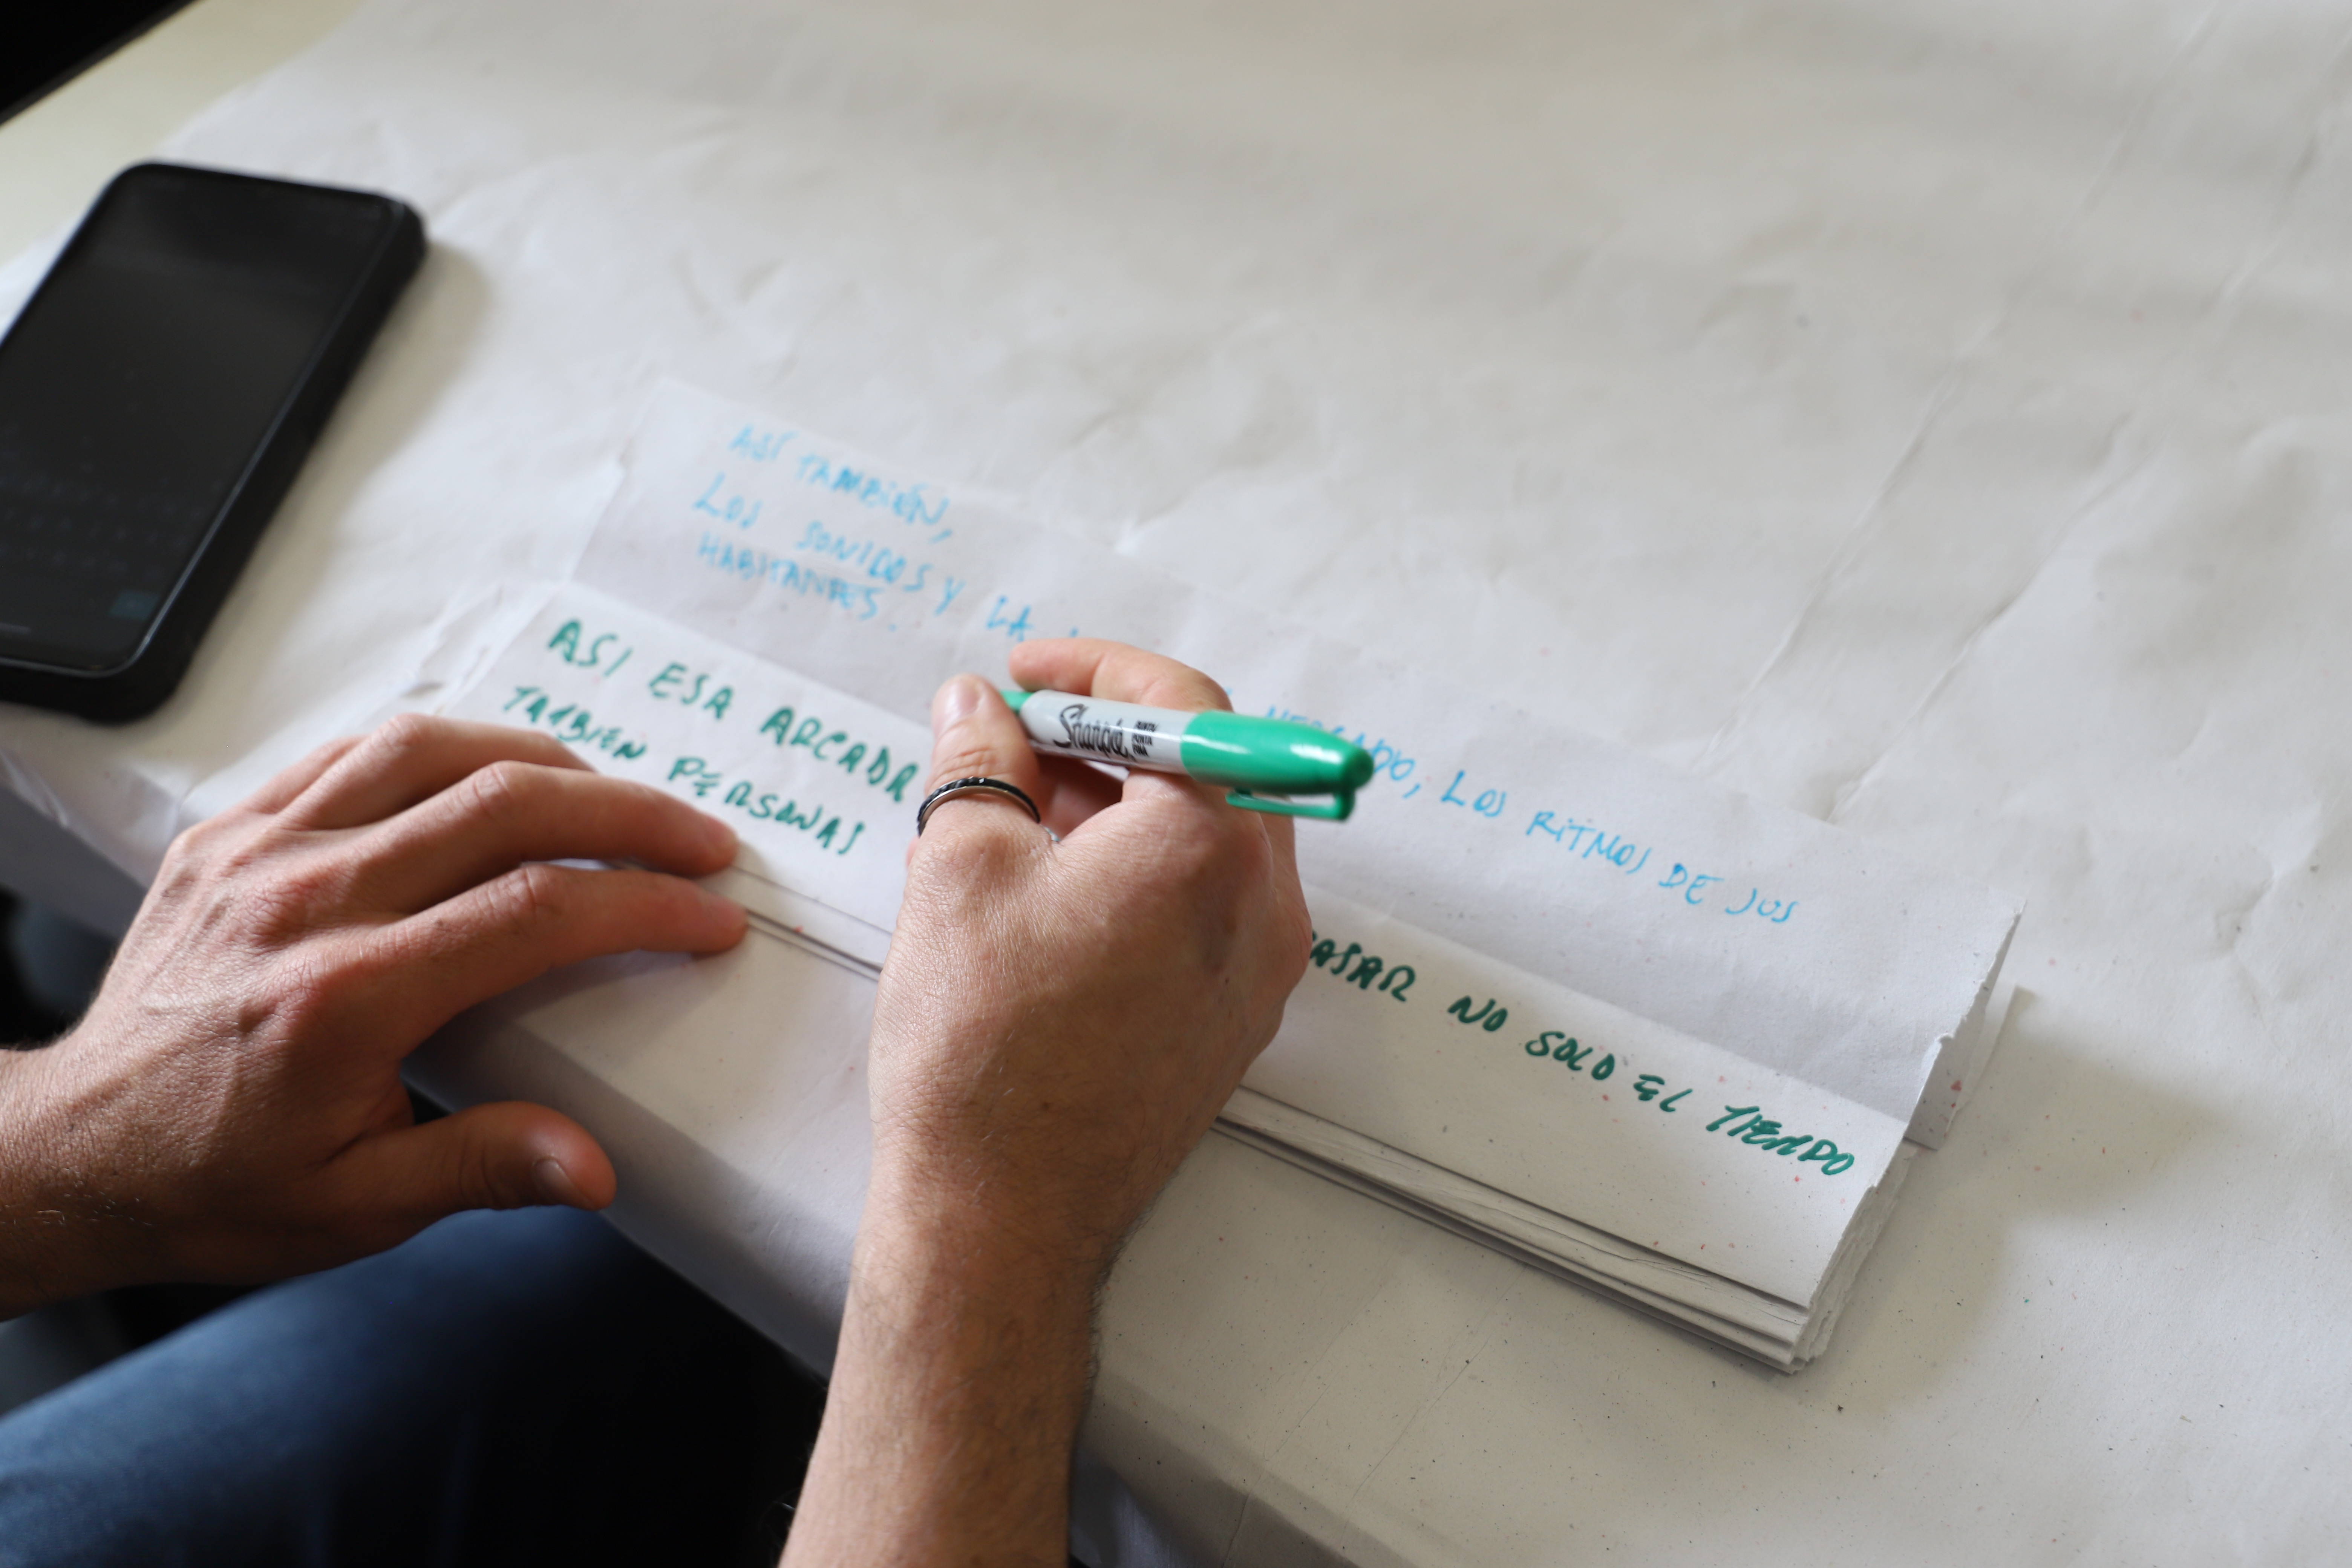 ASÍ TAMBIÉN,
LOS SONIDOS Y LA MERCADO, LOS RITMOS DE SUS
HABITANTES.
ASI ESA ARCADA PASAR NO SOLO EL TIEMPO
TAMBIEN PERSONAS
Sharpie